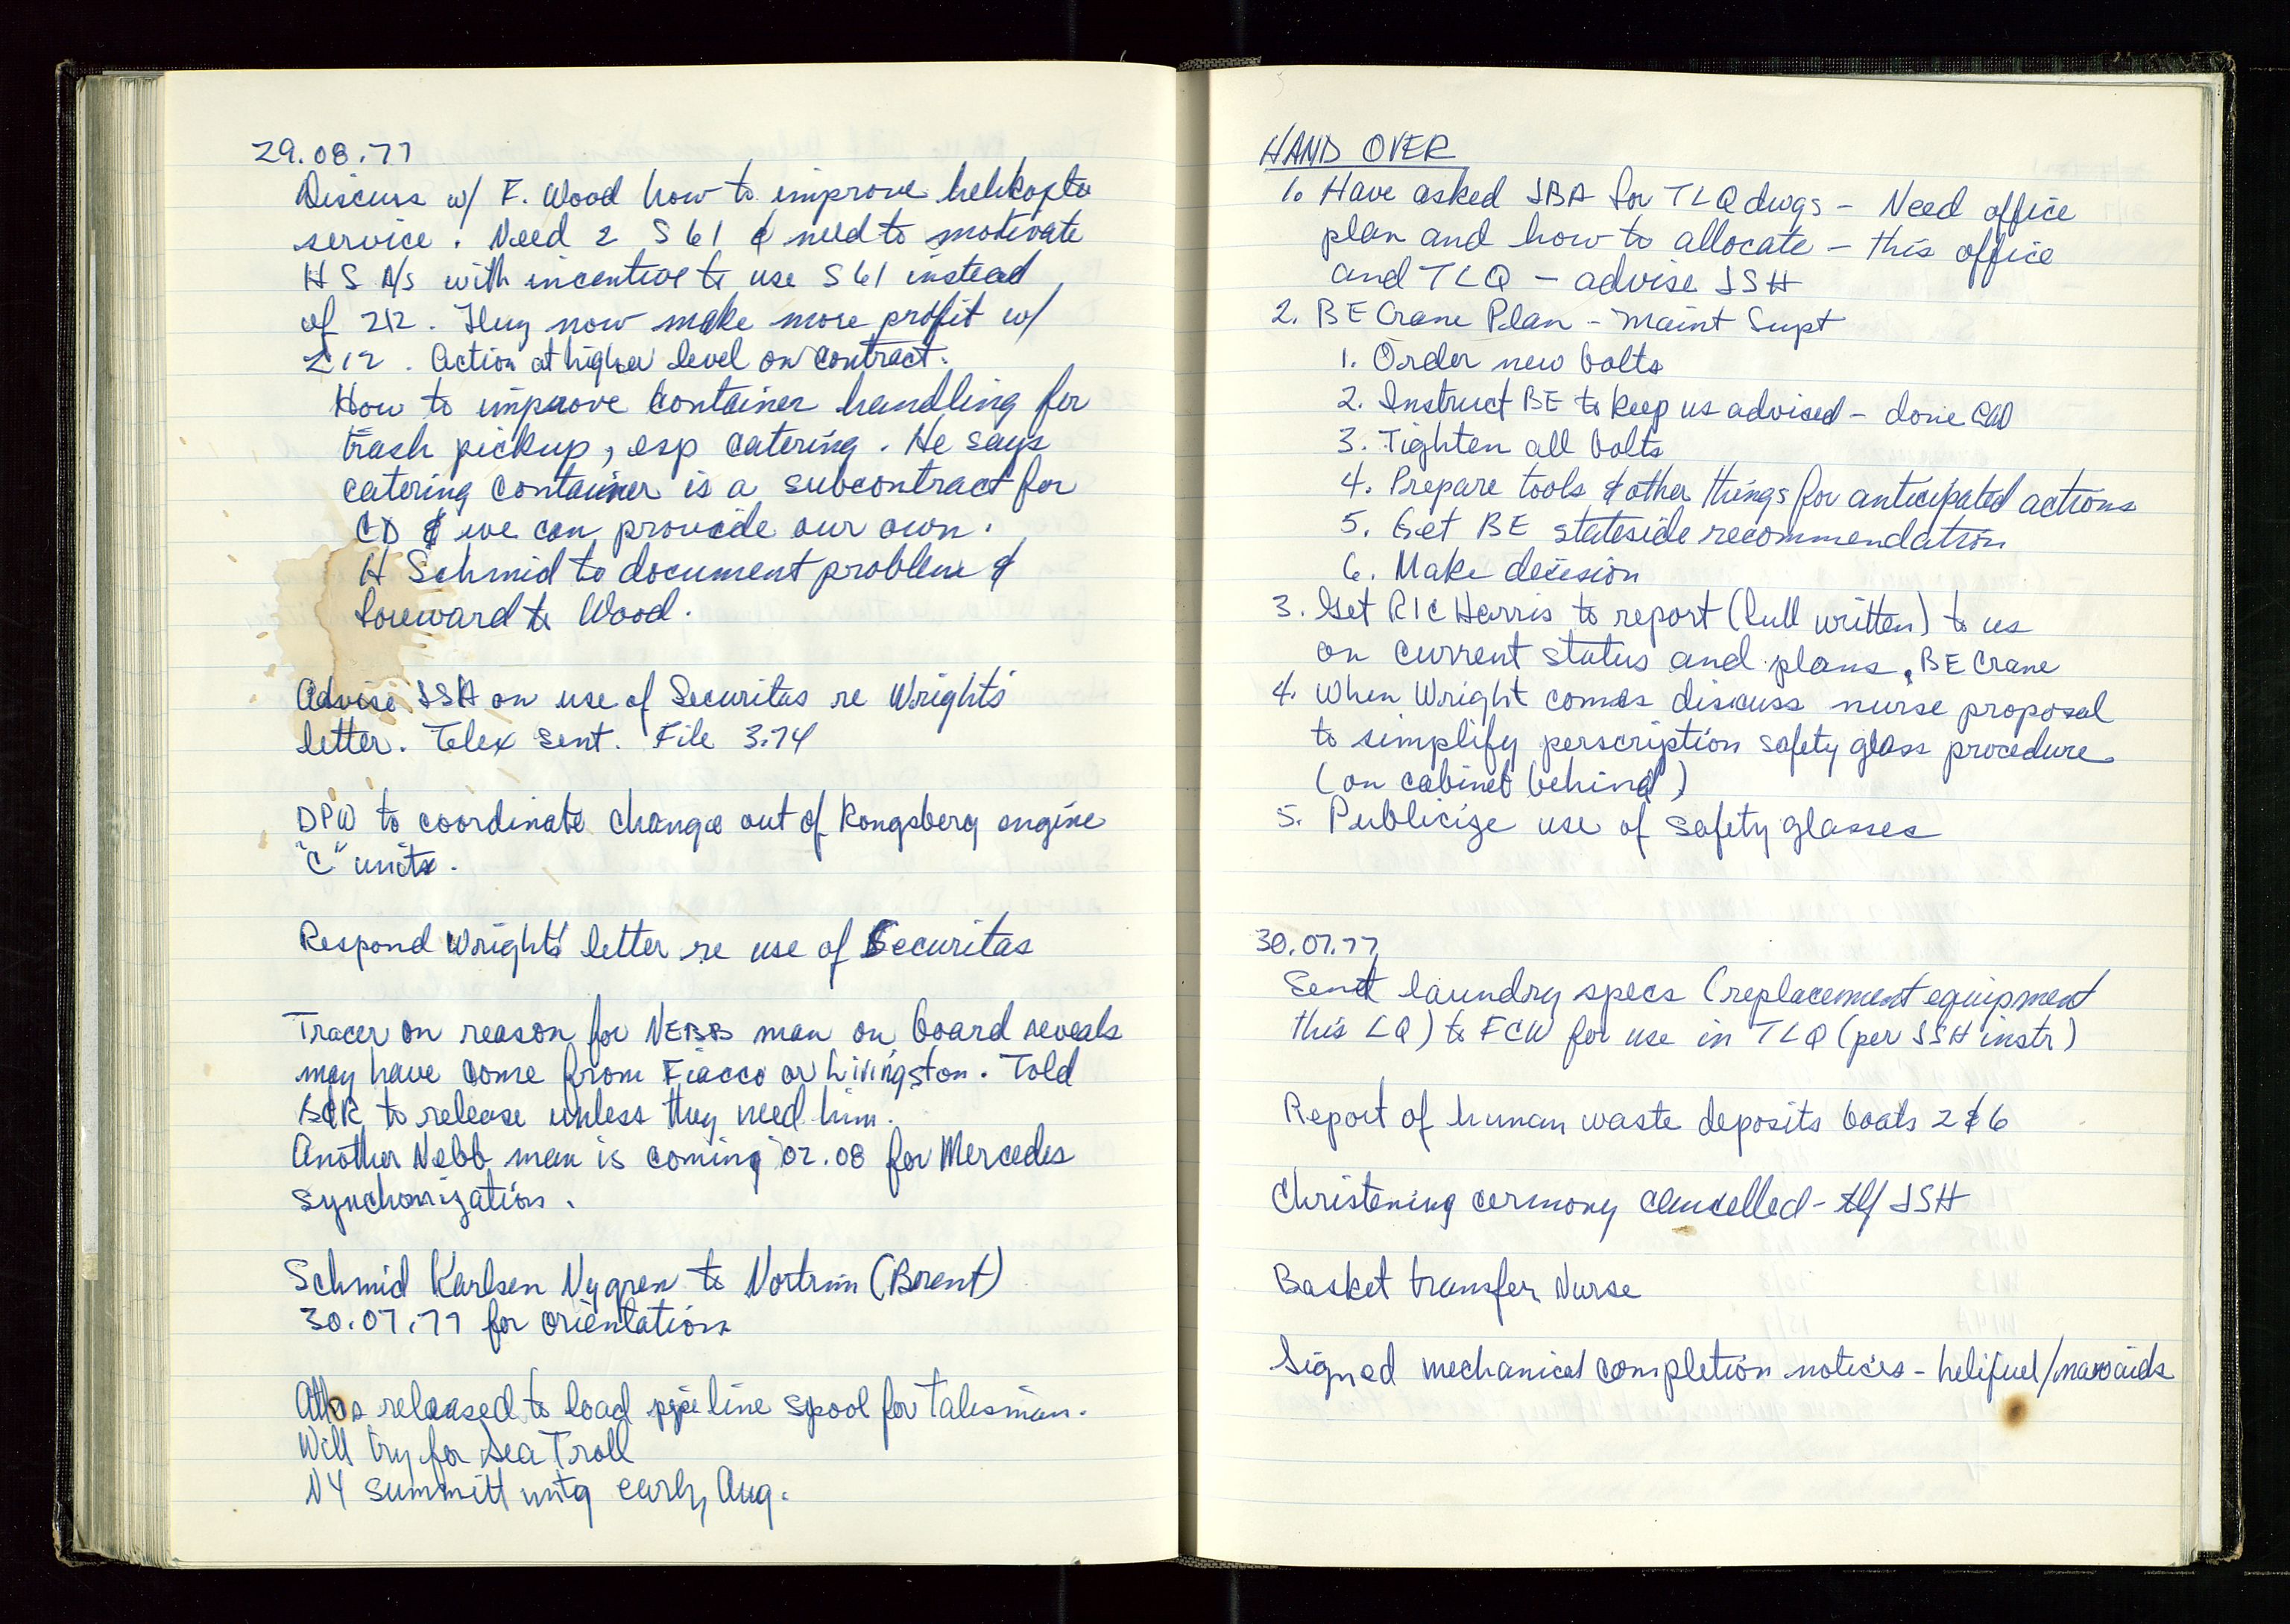 29.08.77
Discuss w/ F. Wood how to improve helikopter
service. Need 2 S61 & need to motivate
HS A/S with incentive to use S61 instead
of 212. They now make more profit w/
212. Action at higher level on contract.
How to improve container handling for
trash pickup, esp catering. He says
catering container is a subcontract for
CD & we can provide our own.
H Schmid to document problem &
foreward to Wood.
Advise JSH on use of Securitas re Wrights
letter. Telex sent. File 3.74
DPW to coordinate change out of Kongsberg engine
"C" units.
Respond Wrights letter re use of Securitas
Tracer on reason for NEBB man on board reveals
may have come from Fiacco or Livingston. Told
BCR to release unless they need him.
Another Nebb man is coming 02.08 for Mercedes
synchonization.
Schmid Karlsen Nygren to Nortrim (Brent)
30.07.77 for orientation
Athos released to load pipeline spool for Talisman.
Will try for Sea Troll
NY summitt mtg early Aug.
HAND OVER
1. Have asked JBA for TLQ dwgs - Need office
plan and how to allocate - this office
and TLQ - advise JSH
2. BE Crane Plan - Maint Supt
1. Order new bolts
2. Instruct BE to keep us advised - done
3. Tighten all bolts
4. Prepare tools & other things for anticipated actions
5. Get BE stateside recommendation
6. Make decision
3. Get RIC Harris to report (full written) to us
on current status and plans, BE Crane
4. When Wright comes discuss nurse proposal
to simplify perscription safety glass procedure
(on cabinet behind)
5. Publicize use of safety glasses
30.07.77
Send laundry specs (replacement equipment
this LQ) to FCW for use in TLQ (per JSH instr)
Report of human waste deposits boats 2 & 6
Christening cermony cancelled - tlf JSH
Basket transfer Nurse
Signed mechanical completion notices - helifuel/navaids